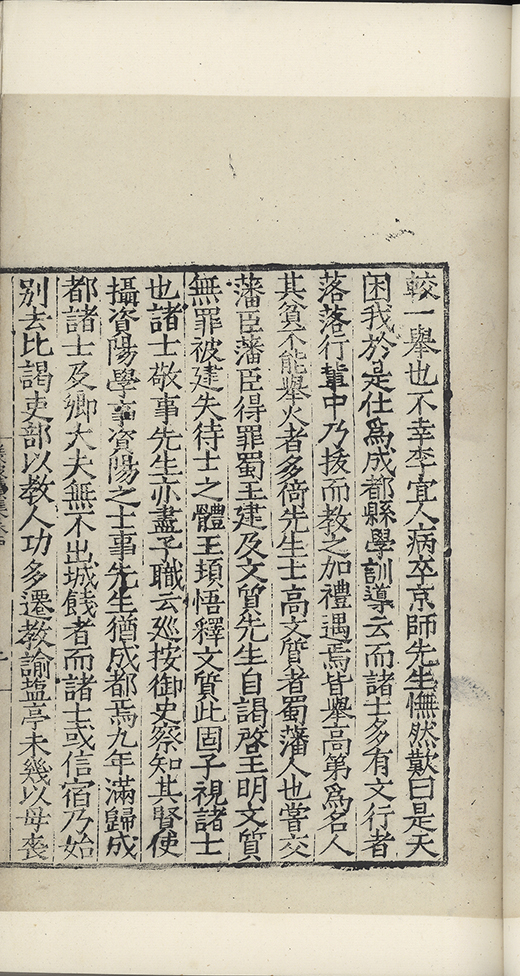 較一舉也不幸李宜人病卒京師先生憮然歎曰是天
困我於是仕爲成都縣學訓導云而諸士多有文行者
落落行輩中乃援而教之加禮遇焉皆舉高第爲名人
其貧不能舉火者多倚先生士高文質者蜀藩人也嘗交
藩臣藩臣得罪蜀王逮及文質先生自謁啓王明文質
無罪被逮失待士之體王頓悟釋文質此固子視諸士
也諸士敬事先生亦盡子職云廵按御史察知其賢使
攝資陽學事資陽之士事先生猶成都焉九年滿歸成
都諸士及卿大夫無不出城餞者而諸士或信宿乃始
別去比謁吏部以教人功多遷教諭盐亭未幾以母喪